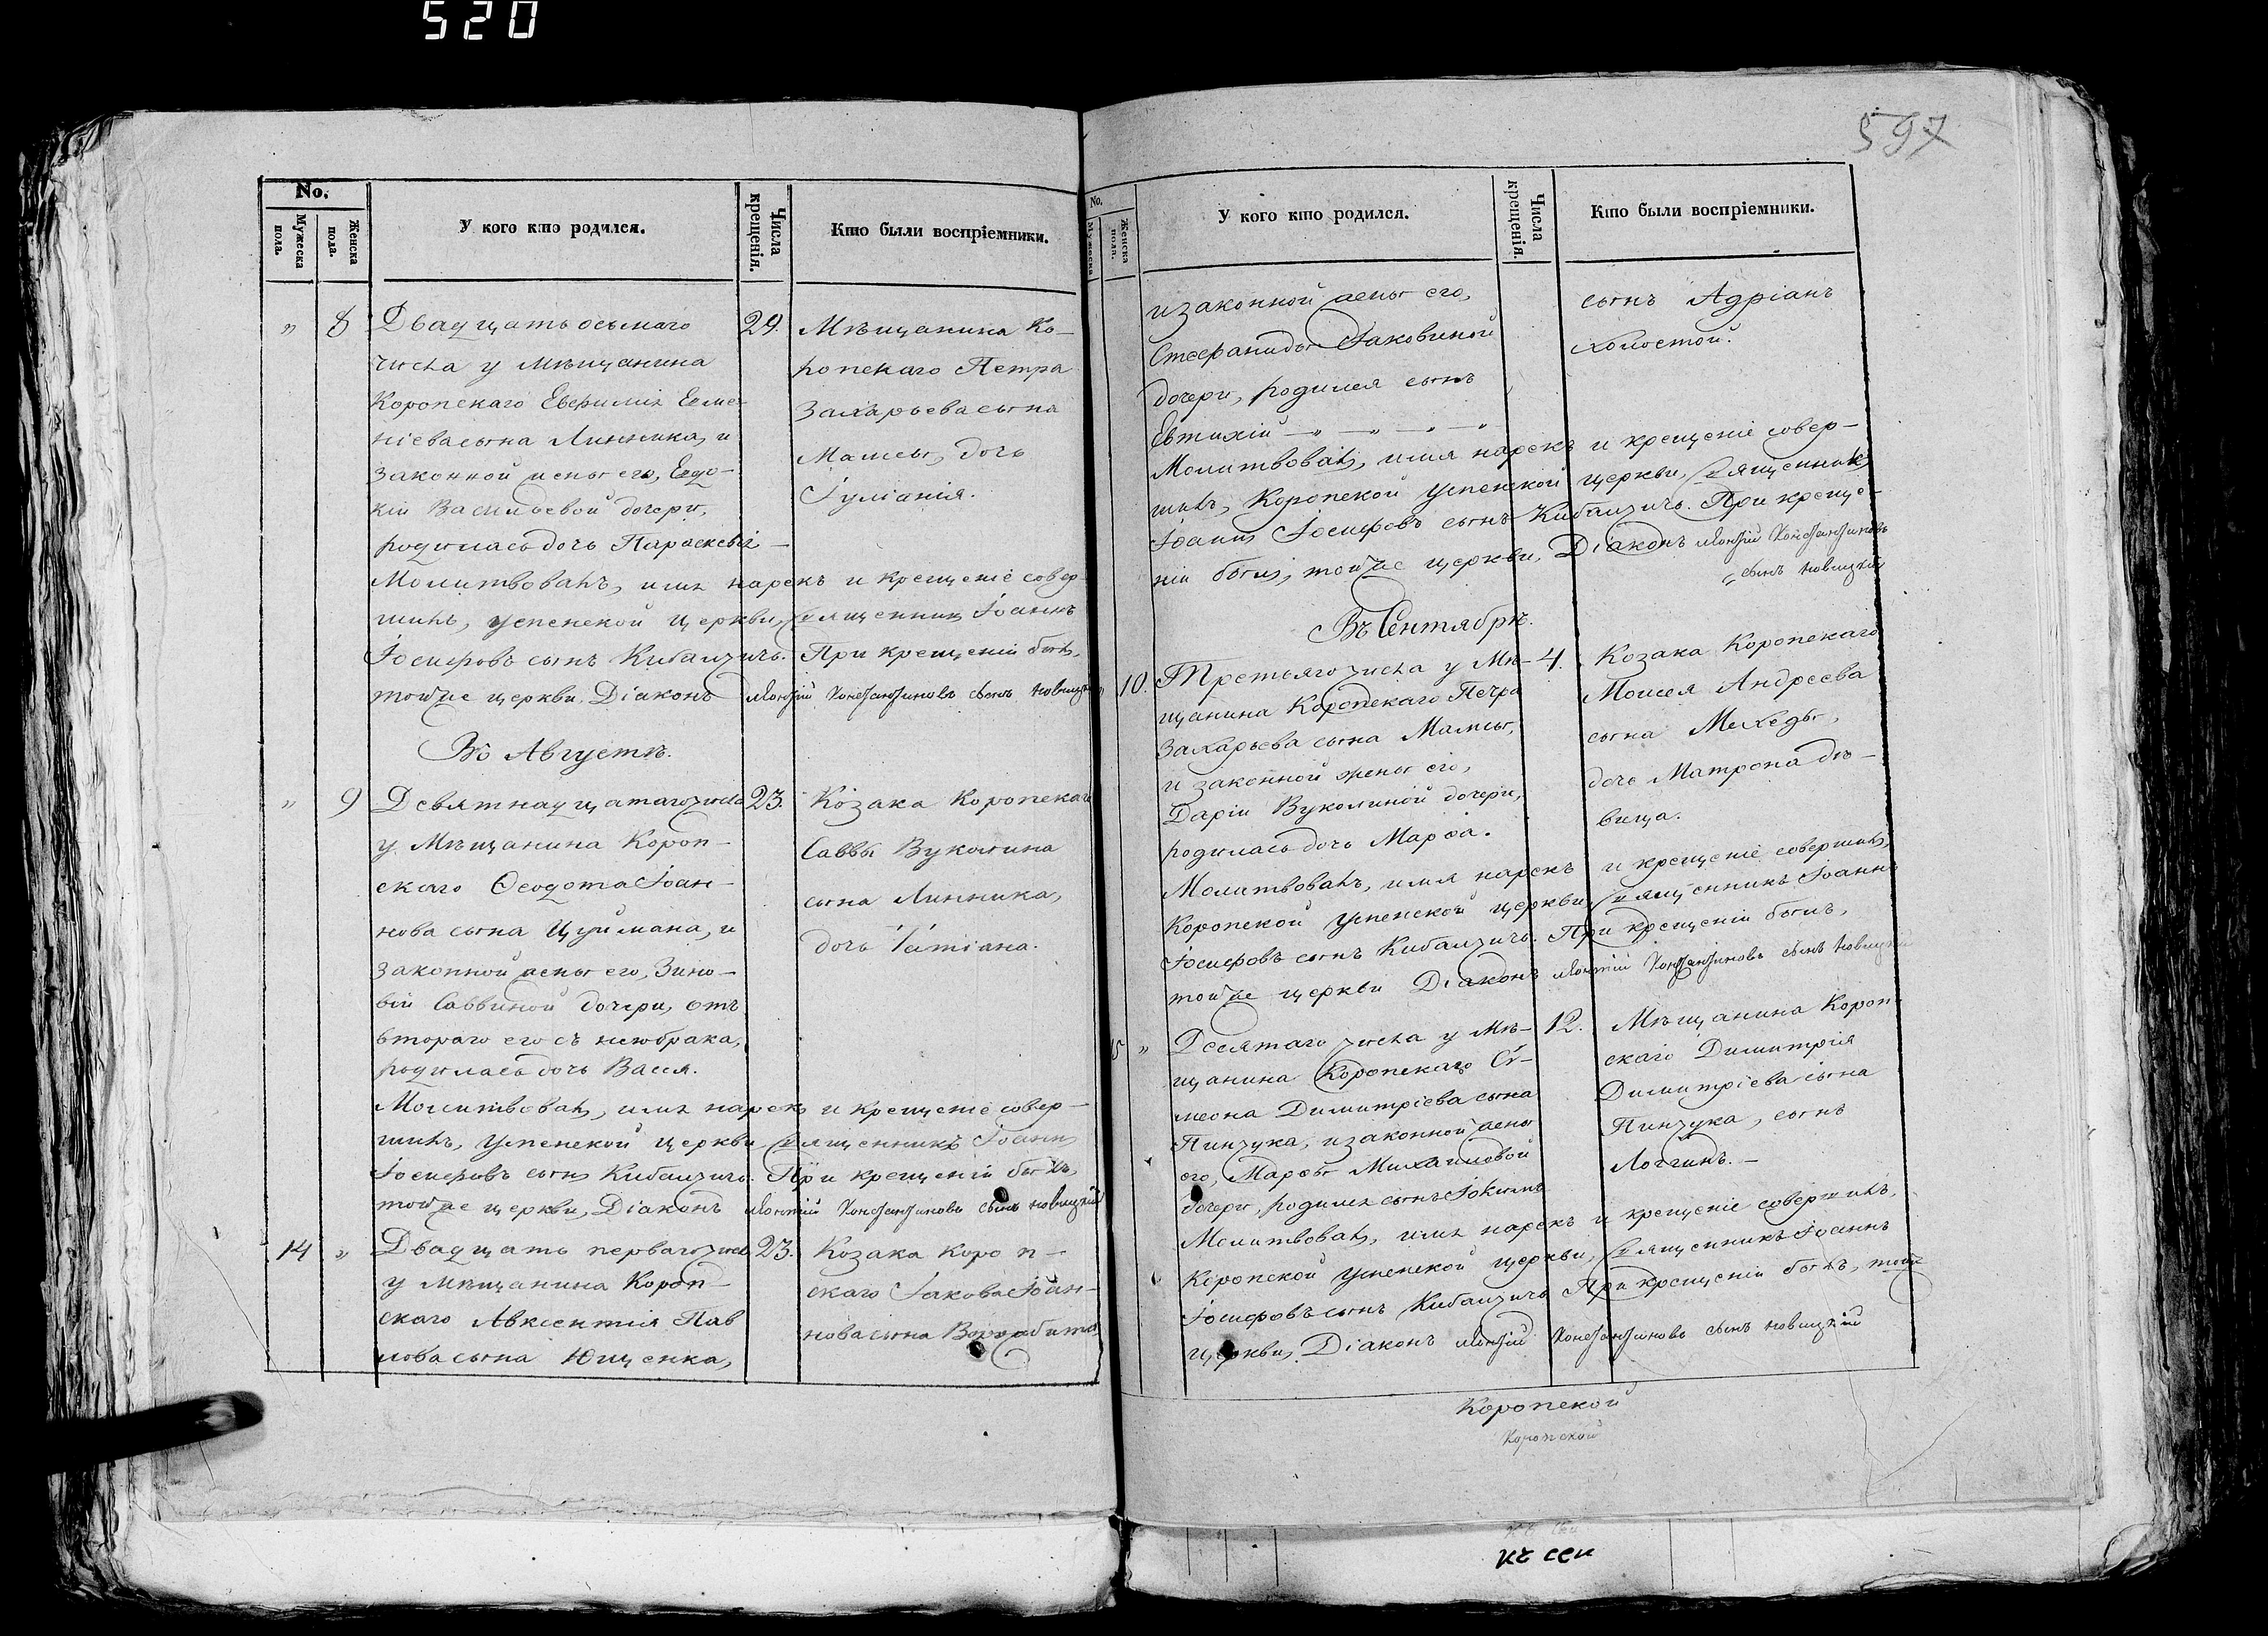 520
No.
Мужеска пола.
Женска пола.
У кого кто родился.
Числа крещенія.
Кто были воспріемники.
„ 8
Двадцать осьмаго
числа у мѣщанина
Коропскаго Евфимія
сына Линника, и
законной жены его, Евдо-
кіи Васильевой дочери,
родилась дочь Параскевія —
29.
Мѣщанина Ко-
ропскаго Петра
Захарьева сына
Мамсы, дочь
Іуліанія.
Молитвовалъ, имя нарекъ и крещеніе совер-
шилъ, Успенской церкви, Священникъ Іоаннъ
Іосифовъ сынъ Кибальчичъ. При крещеніи былъ,
тойже церкви, Діаконъ Константиновъ сынъ Новицкій
Въ Августѣ.
„ 9
Девятнадцатаго числа
у Мѣщанина Короп-
скаго Ѳеодота Іоан-
нова сына Цуймана, и
законной жены его, Зино-
віи Саввиной дочери, отъ
втораго его съ нею брака,
родилась дочь Васса.
23.
Козака Коропскаго
Саввы Вуколина
сына Линника,
дочь Татіана.
Молитвовалъ, имя нарекъ и крещеніе совер-
шилъ, Успенской церкви Священникъ Іоаннъ
Іосифовъ сынъ Кибальчичъ. При крещеніи былъ,
тойже церкви, Діаконъ Константиновъ сынъ Новицкій
14 „
Двадцать перваго числа
у мѣщанина Короп-
скаго Авксентія Пав
лова сына Ющенка,
23.
Козака Короп-
скаго Іакова Іоан-
нова сына
597
No.
Мужеска
Женска пола.
У кого кто родился.
Числа крещенія.
Кто были воспріемники.
и законной жены его,
Стефаниды Іаковиной
дочери, родился сынъ
Евтихій — „ — „ — „ — „
сынъ Адріанъ
холостой.
Молитвовалъ, имя нарекъ и крещеніе совер-
шилъ, Коропской Успенской церкви, Священникъ
Іоаннъ Іосифовъ сынъ Кибальчичъ. При креще-
ніи былъ, тойже церкви, Діаконъ Константиновъ
сынъ Новицкій
Въ Сентябрѣ.
„ 10.
Третьяго числа у Мѣ-
щанина Коропскаго Петра
Захарьева сына Мамсы,
и законной жены его,
Даріи Вуколиной дочери,
родилась дочь Марѳа.
4.
Козака Коропскаго
Моисея Андреева
сына Мехеды,
дочь Матрона дѣ-
вица.
Молитвовалъ, имя нарекъ и крещеніе совершилъ,
Коропской Успенской церкви, Священникъ Іоаннъ
Іосифовъ сынъ Кибальчичъ. При крещеніи былъ,
тойже церкви Діаконъ Константиновъ сынъ Новицкій
5 „
Десятаго числа у Мѣ-
щанина Коропскаго Си-
меона Димитріева сына
Пинчука, и законной жены
его, Марѳы Михаиловой
дочери, родился сынъ Іокимъ
12.
Мѣщанина Короп-
скаго Димитрія
Димитріева сына
Пинчука, сынъ
Логгинъ. —
Молитвовалъ, имя нарекъ и крещеніе совершилъ,
Коропской Успенской церкви, Священникъ Іоаннъ
Іосифовъ сынъ Кибальчичъ При крещеніи былъ, тойже
церкви, Діаконъ Константиновъ сынъ Новицкій
Коропской
Коропской
къ сей